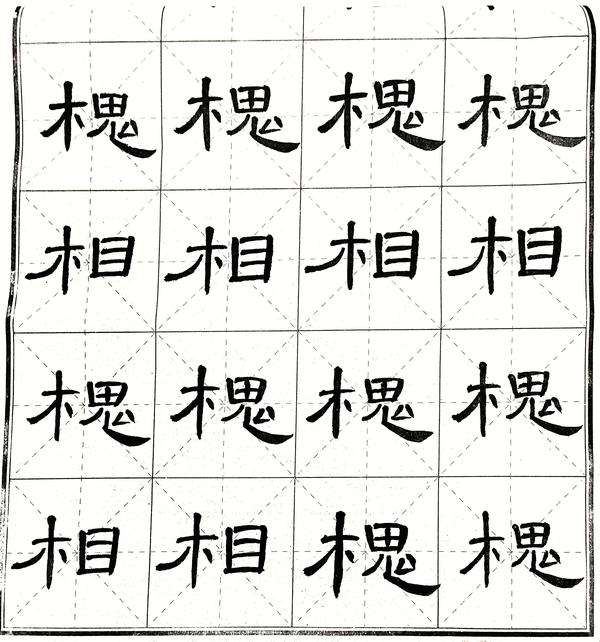 槐槐槐槐
相相相相
槐槐槐槐
相相槐槐